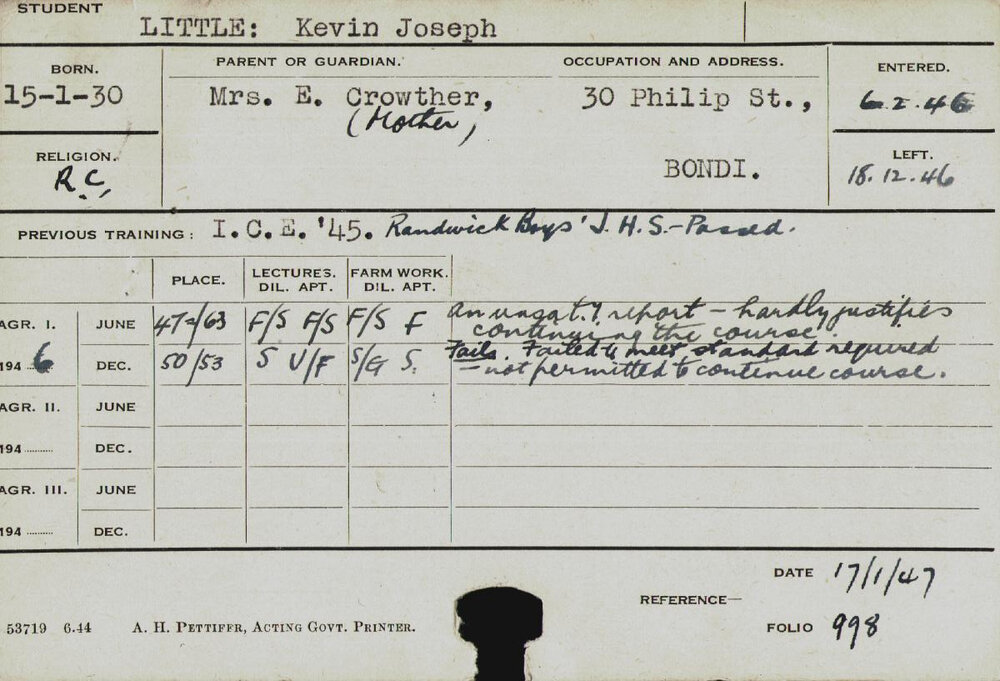 STUDENT
LITTLE: Kevin Joseph
BORN. PARENT OR GUARDIAN. OCCUPATION AND ADDRESS. ENTERED.
15-1-30 Mrs. E. Crowther, 30 Philip St., 6.2.46
(Mother)
RELIGION. BONDI. LEFT.
R.C. 18.12.46
PREVIOUS TRAINING: I.C.E. '45. Randwick Boys' J.H.S.-Passed.
PLACE. LECTURES. FARM WORK.
DIL. APT. DIL. APT.
AGR. I. JUNE 47=/63 F/S F/S F/S F An unsat.y report - hardly justifies
continuing the course.
1946 DEC. 50/53 S U/F S/G S. Fails. Failed to meet standard required
- not permitted to continue course.
AGR. II. JUNE
194 ........ DEC.
AGR. III. JUNE
194 ........ DEC.
DATE 17/1/47
REFERENCE—
53719 6.44 A. H. PETTIFER, ACTING GOVT. PRINTER. FOLIO 998